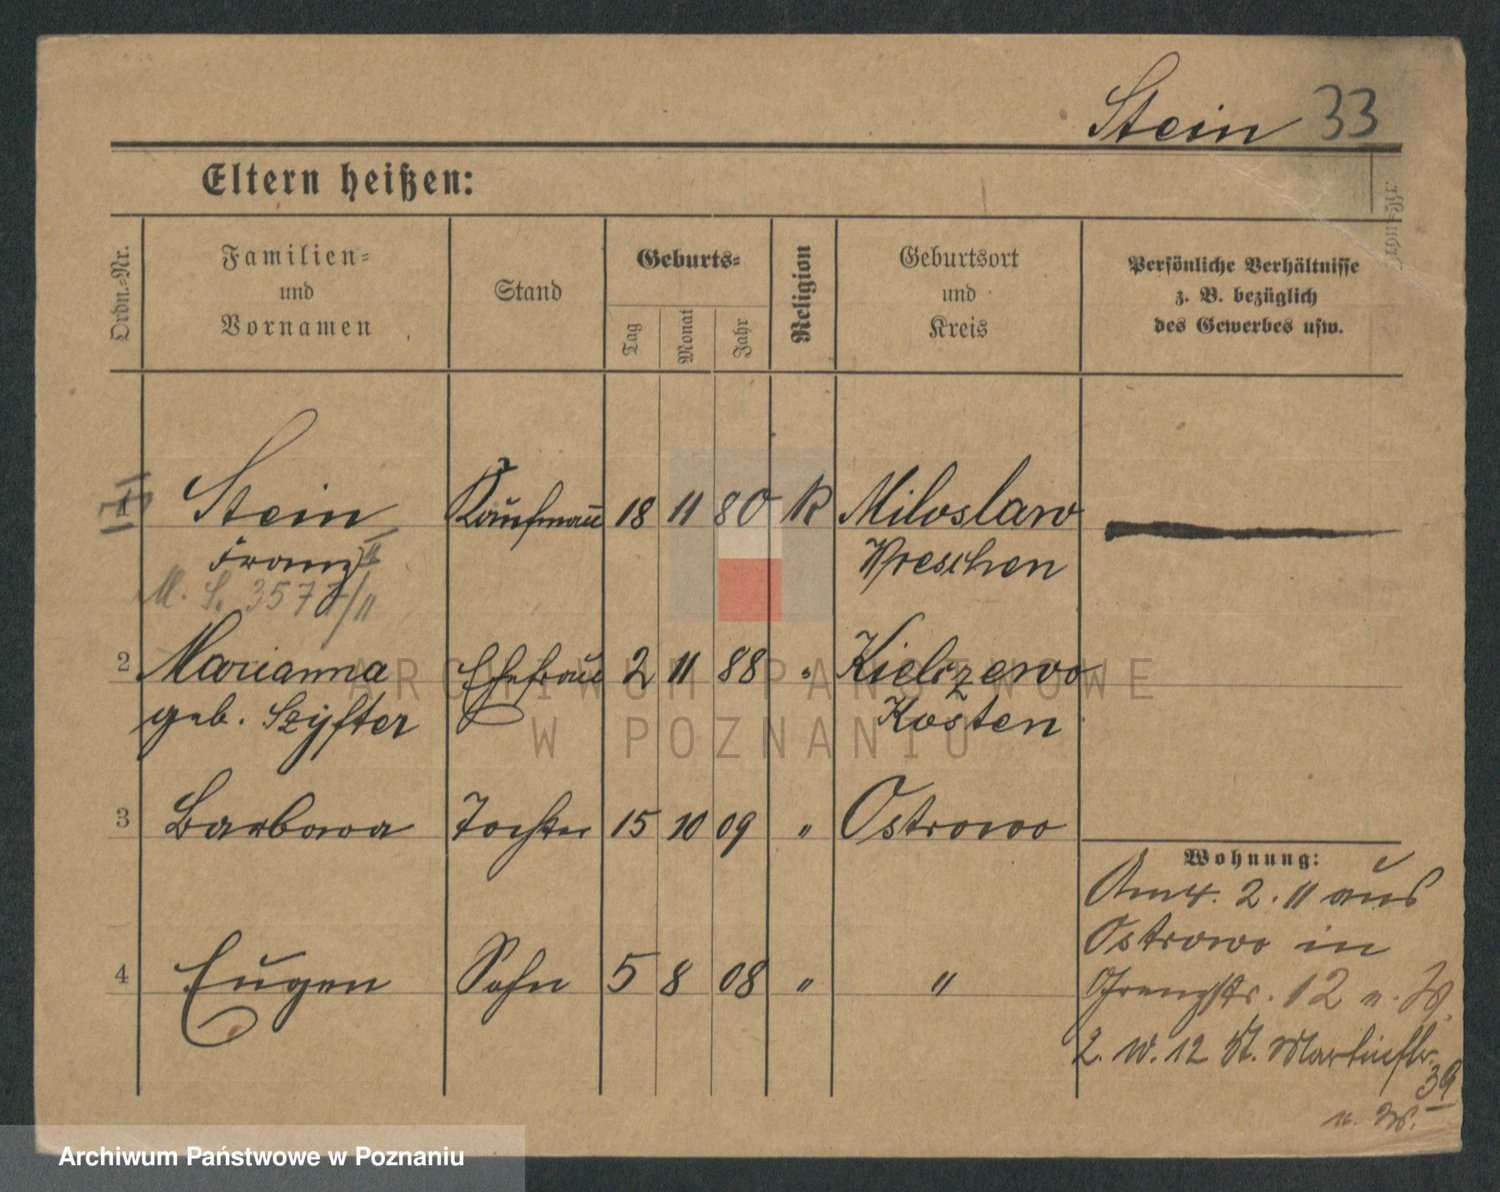 Stein 33
Eltern heißen:
Ordn.-Nr.
Familien-
und
Vornamen
Stand
Geburts-
Tag
Monat
Jahr
Religion
Geburtsort
und
Kreis
Persönliche Verhältnisse
z. B. bezüglich
des Gewerbes usw.
1 Stein Kaufmann 18 11 80 K Miloslaw
Franz II Wreschen
M. S. 3577/11
2 Marianna Ehefrau 2 11 88 " Kielczewo
geb. Szyfter Kosten
3 Barbara Tochter 15 10 09 " Ostrowo
4 Eugen Sohn 5 8 08 " "
Wohnung:
2. 11 aus
Ostrowo in
12 n. W.
2. 10. 12 St. Martinstr.
39
n. W.
ARCHIWUM PAŃSTWOWE
W POZNANIU
Archiwum Państwowe w Poznaniu